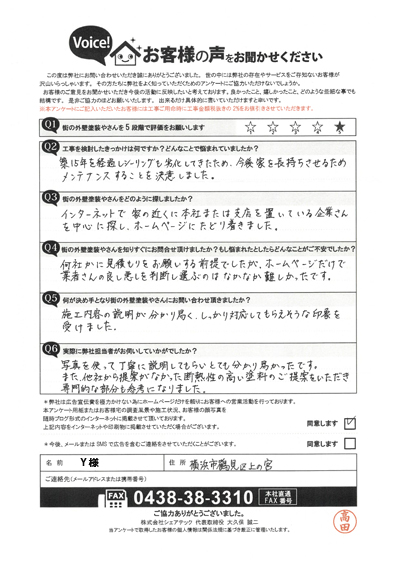 Voice!
お客様の声をお聞かせください
この度は弊社にお問い合わせいただき誠にありがとうございました。世の中には弊社の存在やサービスをご存知ないお客様が
沢山いらっしゃいます。その方たちに弊社をよく知っていただくためのアンケートにご協力いただけないでしょうか。
お客様のご意見をお聞かせいただき今後の活動に反映したいと考えております。良かったこと、嬉しかったこと、どのような些細な事でも
結構です。是非ご協力のほどお願いいたします。出来るだけ具体的に書いていただけますと幸いです。
※本アンケートにご記入いただいたお客様には工事ご用命時に工事金額税抜きの2%をお値引きさせていただきます。
Q1 街の外壁塗装やさんを5段階で評価をお願いします ☆ ☆ ☆ ☆ ★
Q2 工事を検討したきっかけは何ですか？どんなことで悩まれていましたか？
築15年を経過しシーリングも劣化してきたため、今後家を長持ちさせるため
メンテナンスすることを決意しました。
Q3 街の外壁塗装やさんをどのように探しましたか？
インターネットで家の近くに本社または支店を置いている企業さん
を中心に探し、ホームページにたどり着きました。
Q4 街の外壁塗装やさんを知りすぐにお問合せ頂けましたか？もし悩まれたとしたらどんなことがご不安でしたか？
何社かに見積もりをお願いする前提でしたが、ホームページだけで
業者さんの良し悪しを判断し選ぶのはなかなか難しかったです。
Q5 何が決め手となり街の外壁塗装やさんにお問い合わせ頂きましたか？
施工内容の説明が分かり易く、しっかり対応してもらえそうな印象を
受けました。
Q6 実際に弊社担当者がお伺いしていかがでしたか？
写真を使って丁寧に説明してもらいとても分かり易かったです。
また、他社から提案がなかった断熱性の高い塗料のご提案をいただき
専門的な部分も参考になりました。
＊弊社は広告宣伝費を極力かけない為にホームページだけを頼りにお客様への営業活動を行っております。
本アンケート用紙またはお客様宅の調査風景や施工状況、お客様の顔写真を
随時ブログ形式のインターネットに掲載させて頂いております。
上記内容をインターネットや印刷物に掲載させていただく場合がございます。 同意します ✓
＊今後、メールまたはSMSで広告を含むご連絡をさせていただくことがございます。 同意します
名前 Y様 住所 横浜市鶴見区上の宮
ご連絡先(メールアドレスまたは携帯番号)
FAX 0438-38-3310 本社直通 FAX番号
ご協力ありがとうございました。
株式会社シェアテック 代表取締役 大久保 誠二
当アンケートで取得したお客様の個人情報は関係法規に基づき厳正に管理いたします。
高田